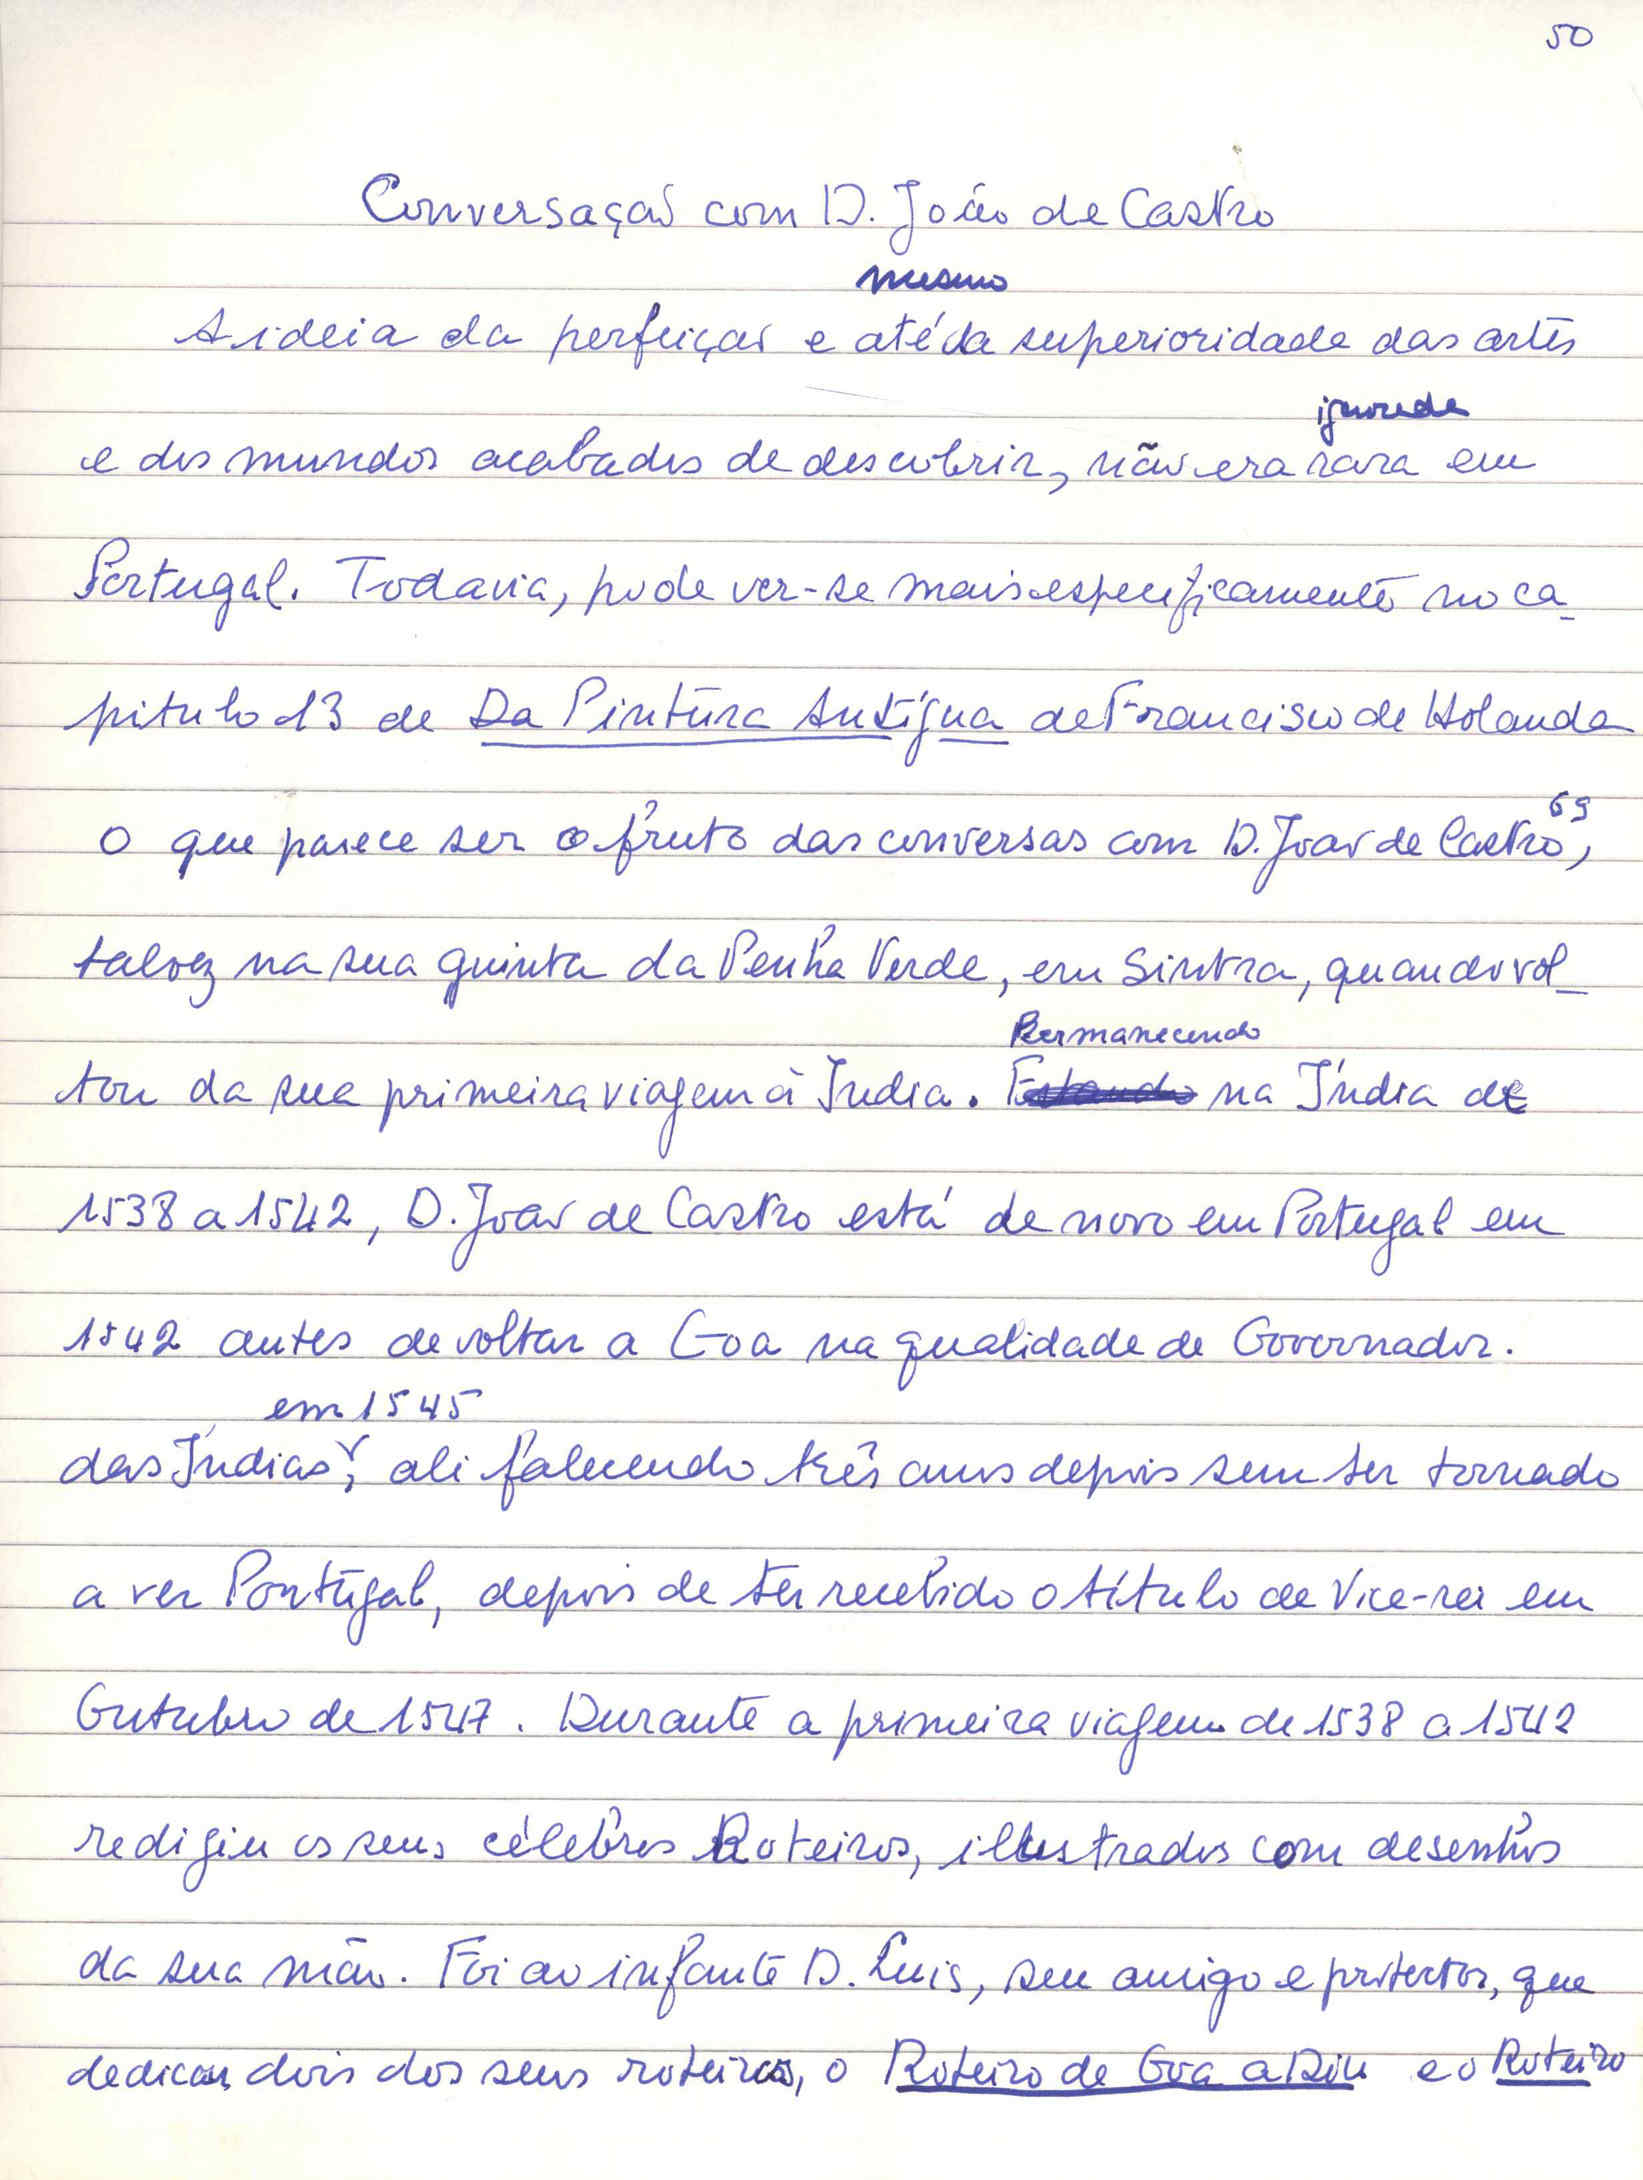 50
Conversação com D. João de Castro
mesmo
A ideia da perfeição e até da superioridade das artes
ignorada
e dos mundos acabados de descobrir, não era rara em
Portugal. Todavia, pode ver-se mais especificamente no ca-
pitulo 13 de Da Pintura Antígua de Francisco de Holanda
o que parece ser o fruto das conversas com D. João de Castro69,
talvez na sua quinta da Penha Verde, em Sintra, quando vol-
Permanecendo
tou da sua primeira viagem à Índia. Estando na Índia de
1538 a 1542, D. João de Castro está de novo em Portugal em
1542 antes de voltar a Goa na qualidade de Governador.
em 1545
das Índias, ali falecendo três anos depois sem ter tornado
a ver Portugal, depois de ter recebido o título de Vice-rei em
Outubro de 1547. Durante a primeira viagem de 1538 a 1542
redigiu os seus célebres Roteiros, illustrados com desenhos
da sua mão. Foi ao infante D. Luis, seu amigo e protector, que
dedicou dois dos seus roteiros, o Roteiro de Goa a Diu e o Roteiro